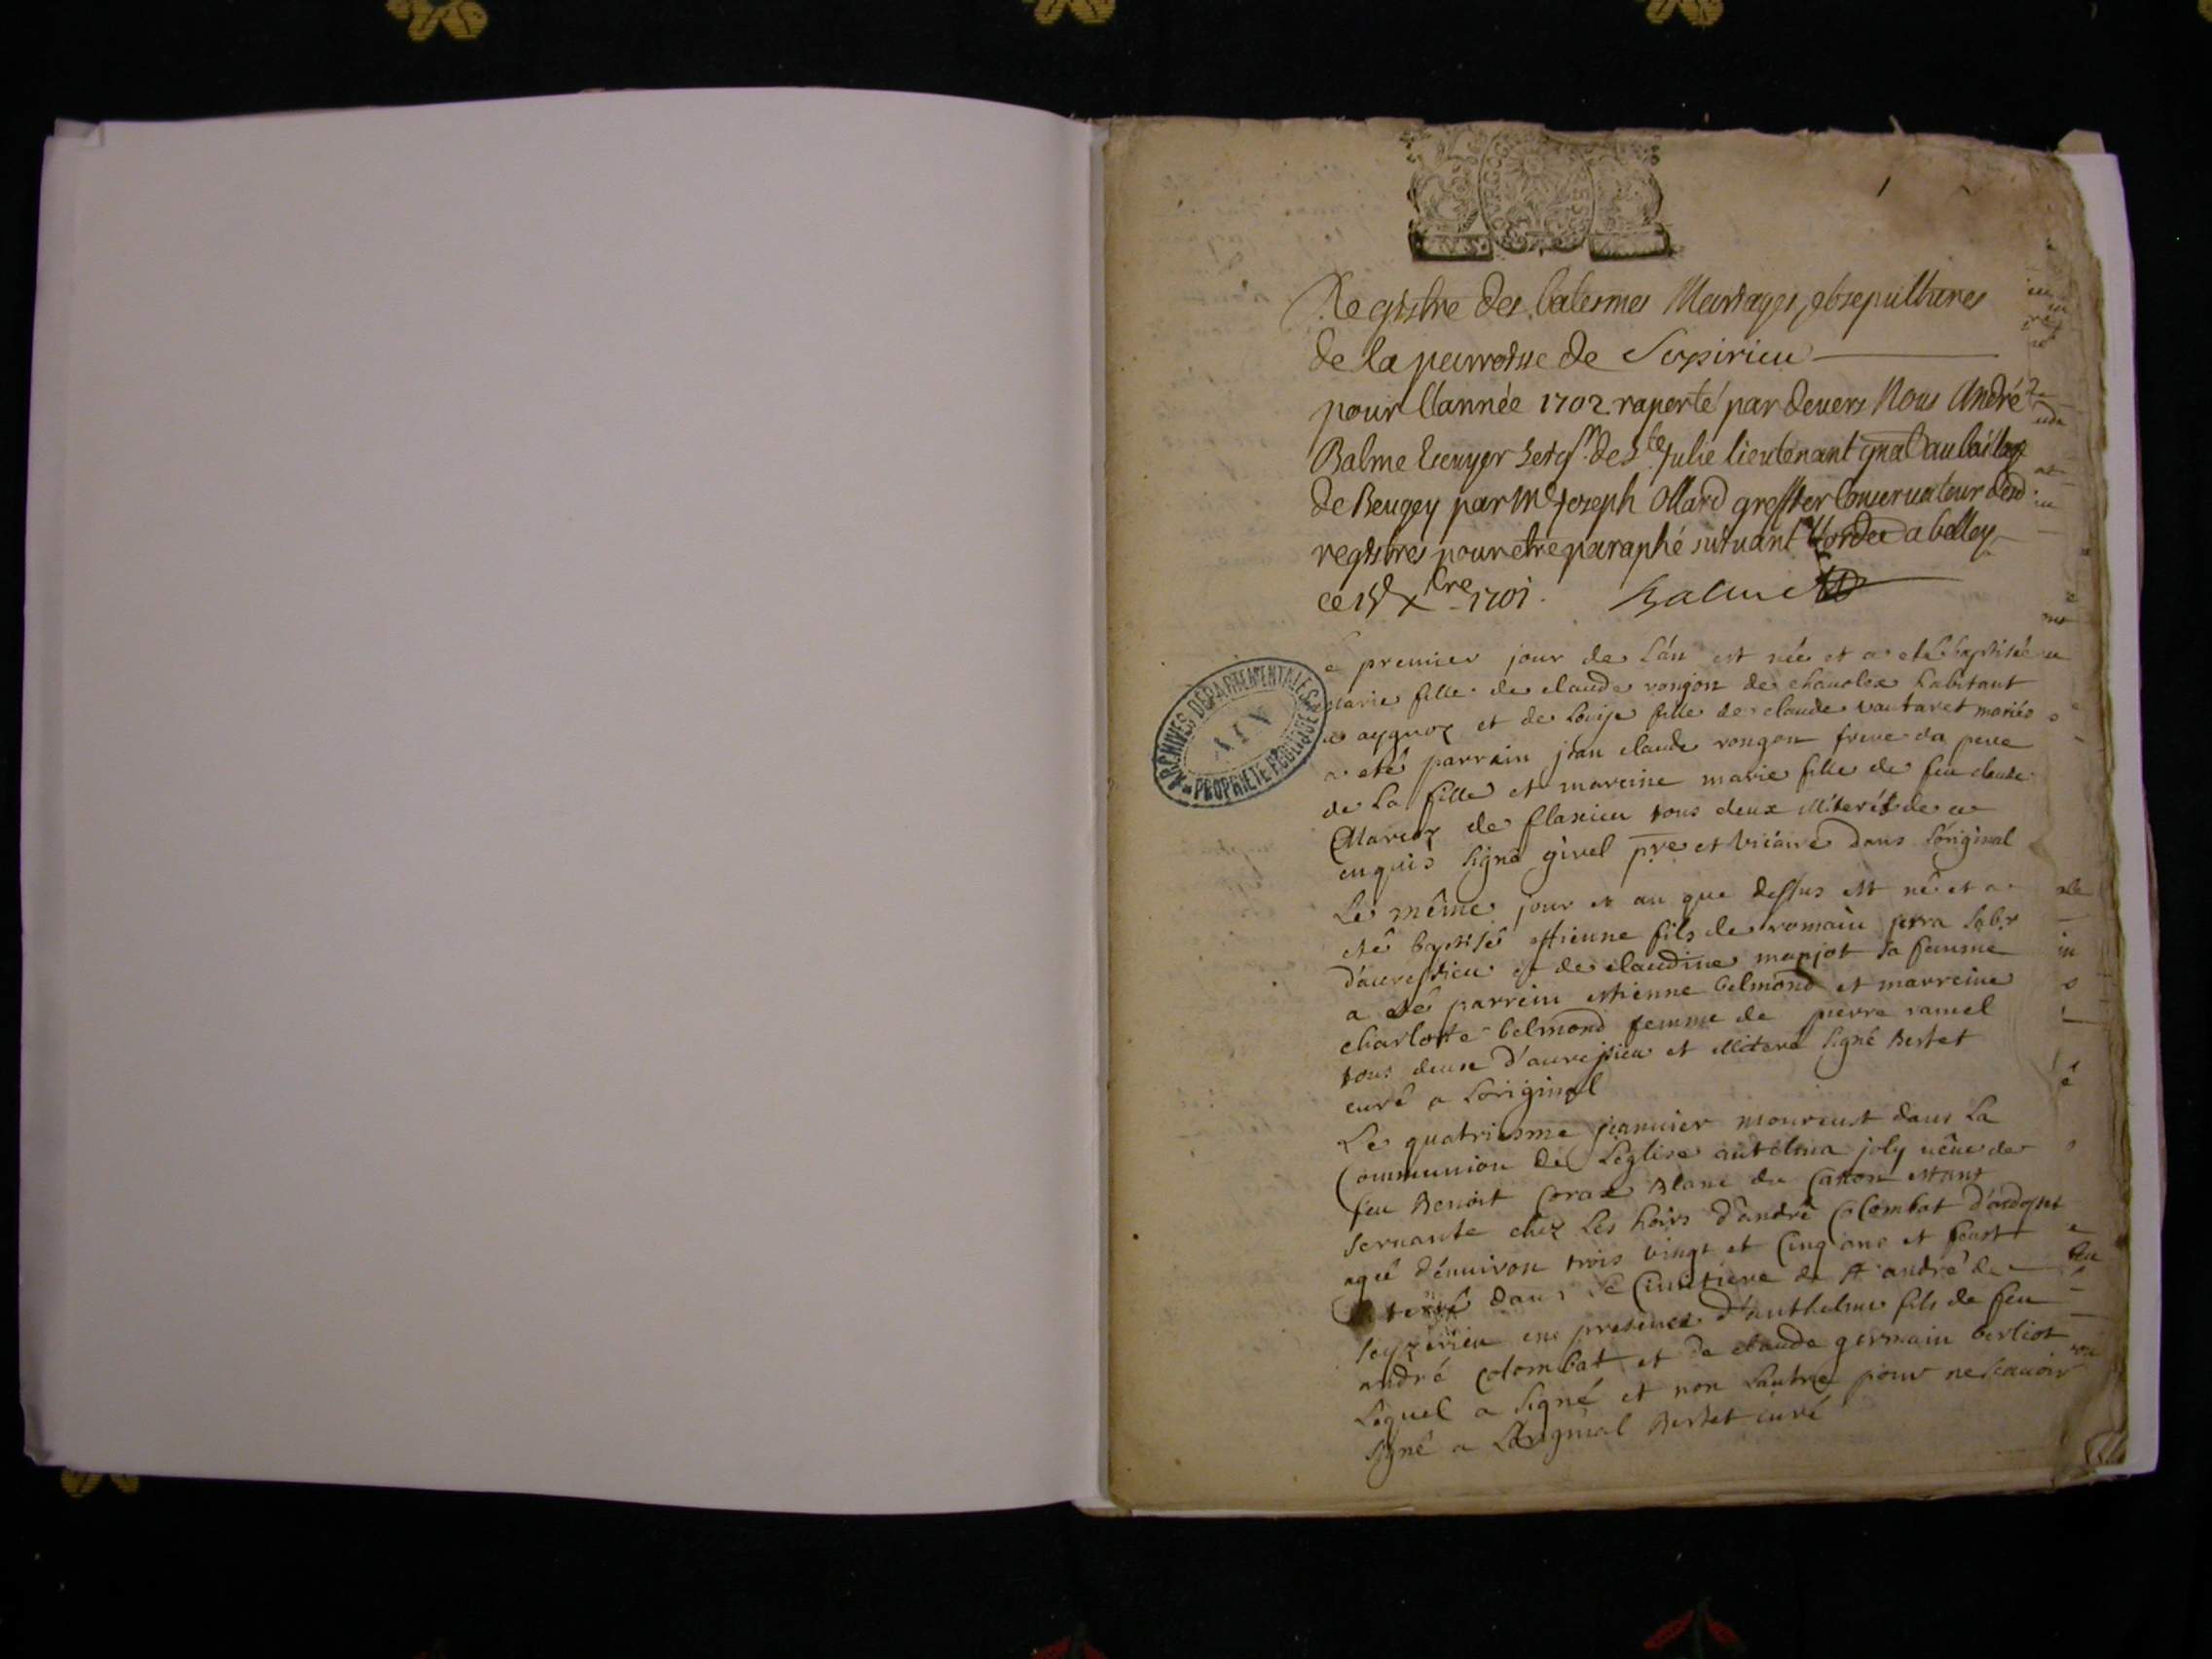 1
Registre des batesmes Mariages, et sepultures
de la parroisse de
pour l'année 1702. raporté par devers Nous André
Balme Ecuyer Seigr. de Ste Julie lieutenant gnal au bailliage
de Beugey par Me Joseph Ollard greffier Conservateur desd
registres pour etre paraphé suivant l'ordce a belley
ce 15e xbre 1701. Balme
ARCHIVES DÉPARTEMENTALES
AIN
PROPRIÉTÉ PUBLIQUE
e premier jour de l'an est née et a eté baptisée
Marie fille de claude rongon de habitant
et de Louise fille de claude vautaret mariés
a eté parrain jean claude rongon frere du pere
de La fille et mareine marie fille de feu claude
de flaxieu tous deux illiteres de ce
enquis signé givel pre et vicaire dans l'original
Le même jour et an que dessus est né et a
eté baptisé estienne fils de romain
et de claudine sa femme
a eté parrein estienne belmond et marreine
charlotte belmond femme de pierre ramel
tous deux et illiteré signé Bertet
curé a Loriginal
Le quatriesme janvier mourust dans La
Communion de Leglise joly veuve de
feu Benoit Blanc du estant
servante chez Les hoirs d'andré Colombat
agée d'environ trois vingt et Cinq ans et feust
dans Le Cimetiere de st andré de
en presence d'anthelme fils de feu
andré Colombat et de claude germain berliot
Lequel a signé et non Lautre pour ne scavoir
signé a Loriginal Bertet curé